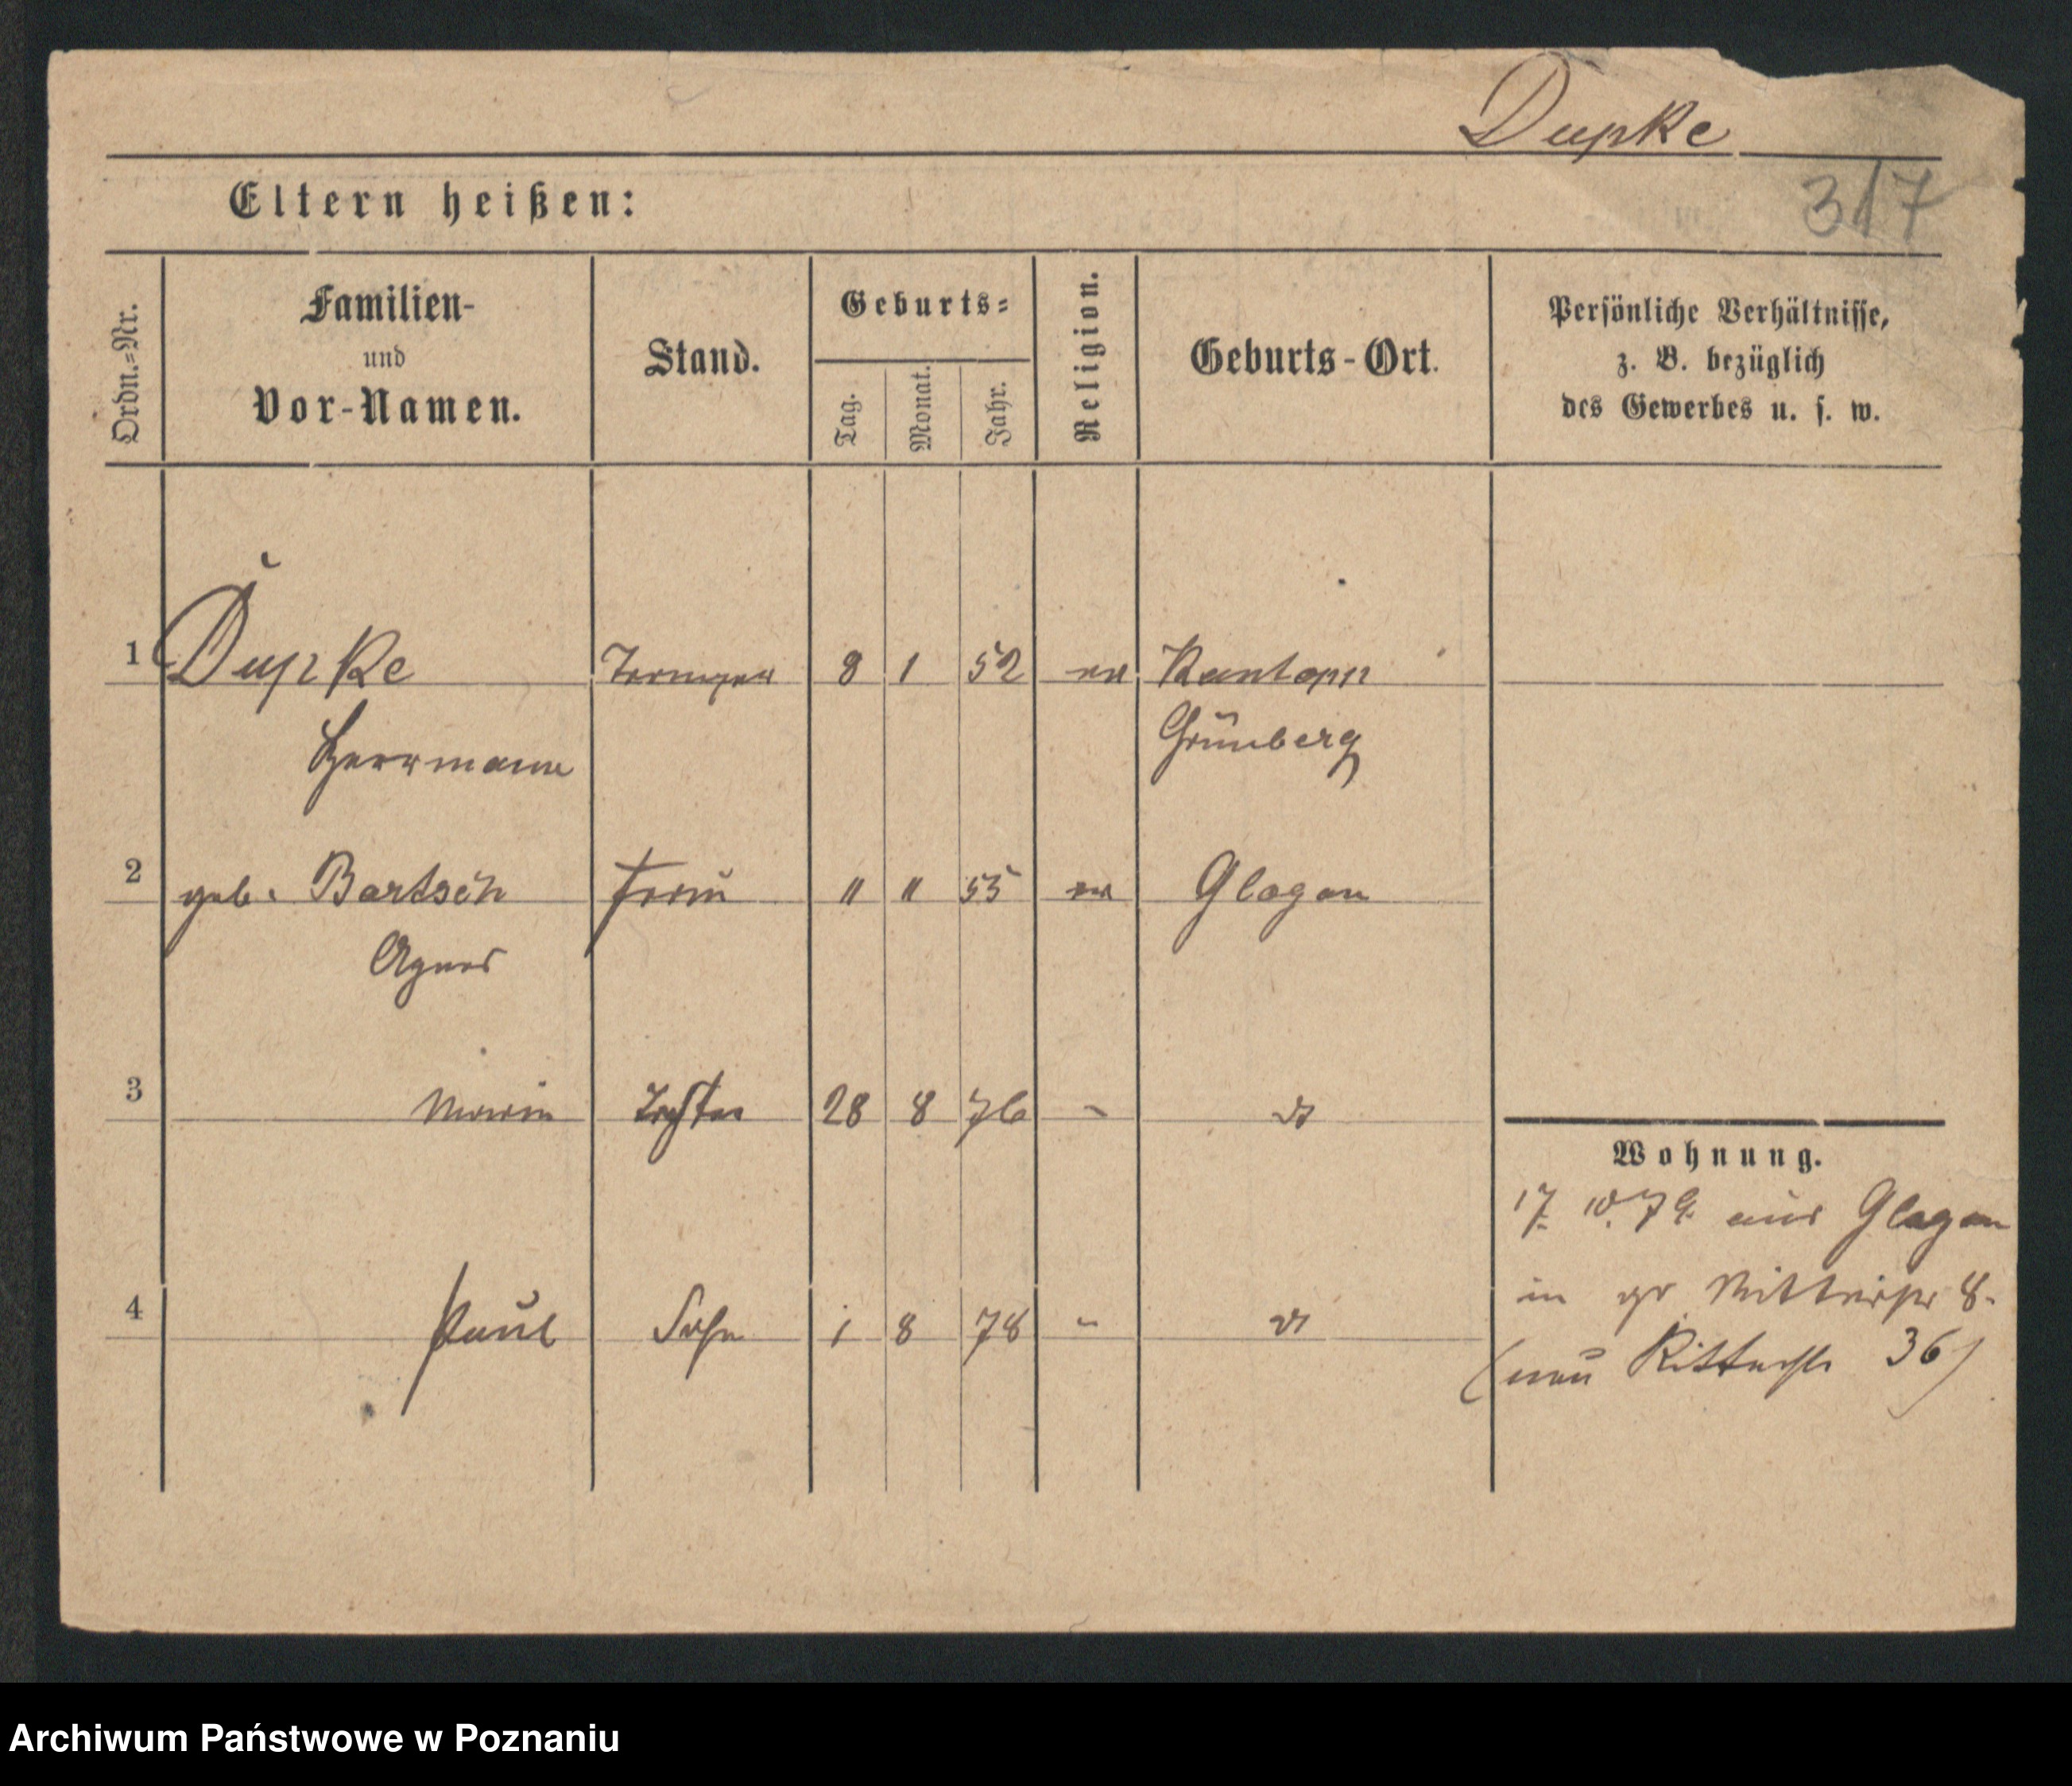 Dupke
317
Eltern heißen:
Ordn.=Nr.
Familien-
und
Vor-Namen.
Stand.
Geburts=
Tag.
Monat.
Jahr.
Religion.
Geburts-Ort.
Persönliche Verhältnisse,
z. B. bezüglich
des Gewerbes u. s. w.
1 Dupke 8 1 52 ev Kontopp
Herrmann Grünberg
2 geb. Bartsch Frau " " 55 ev Glogau
Agnes
3 Maria Tochter 28 8 76 "
Wohnung.
17. 10. 79. aus Glogau
in gr 8.
4 Paul Sohn 1 8 78 "
(neu Ritterstr 36)
Archiwum Państwowe w Poznaniu